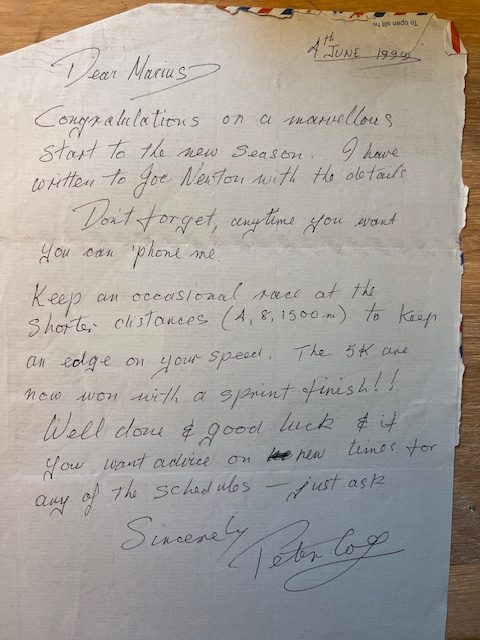 To open slit he
4th JUNE 1999
Dear Marius
Congratulations on a marvellous
start to the new season. I have
written to Joe Newton with the details
Don't forget, anytime you want
you can 'phone me.
Keep an occasional race at the
shorter distances (4, 8, 1500m) to keep
an edge on your speed. The 5K are
now won with a sprint finish!!
Well done & good luck & if
you want advice on new times for
any of the schedules – just ask
Sincerely
Peter Coe